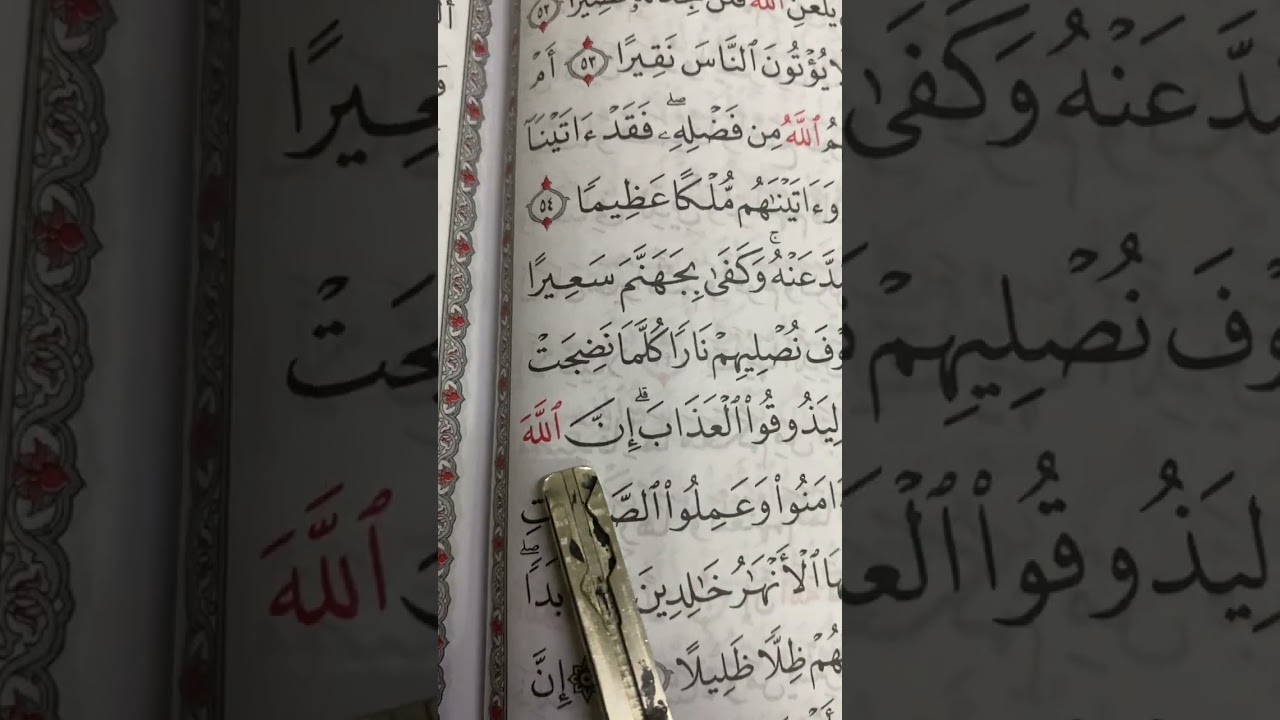 يَلْعَنِ ٱللَّهُ فَلَن تَجِدَ لَهُۥ نَصِيرًا ٥٢
يُؤْتُونَ ٱلنَّاسَ نَقِيرًا ٥٣ أَمْ
مُ ٱللَّهُ مِن فَضْلِهِۦۖ فَقَدْ ءَاتَيْنَآ
وَءَاتَيْنَٰهُم مُّلْكًا عَظِيمًا ٥٤
دَّ عَنْهُۚ وَكَفَىٰ بِجَهَنَّمَ سَعِيرًا
وْفَ نُصْلِيهِمْ نَارًا كُلَّمَا نَضِجَتْ
لِيَذُوقُوا۟ ٱلْعَذَابَۗ إِنَّ ٱللَّهَ
ءَامَنُوا۟ وَعَمِلُوا۟
ٱلْأَنْهَٰرُ خَٰلِدِينَ
هُمْ ظِلًّا ظَلِيلًا إِنَّ